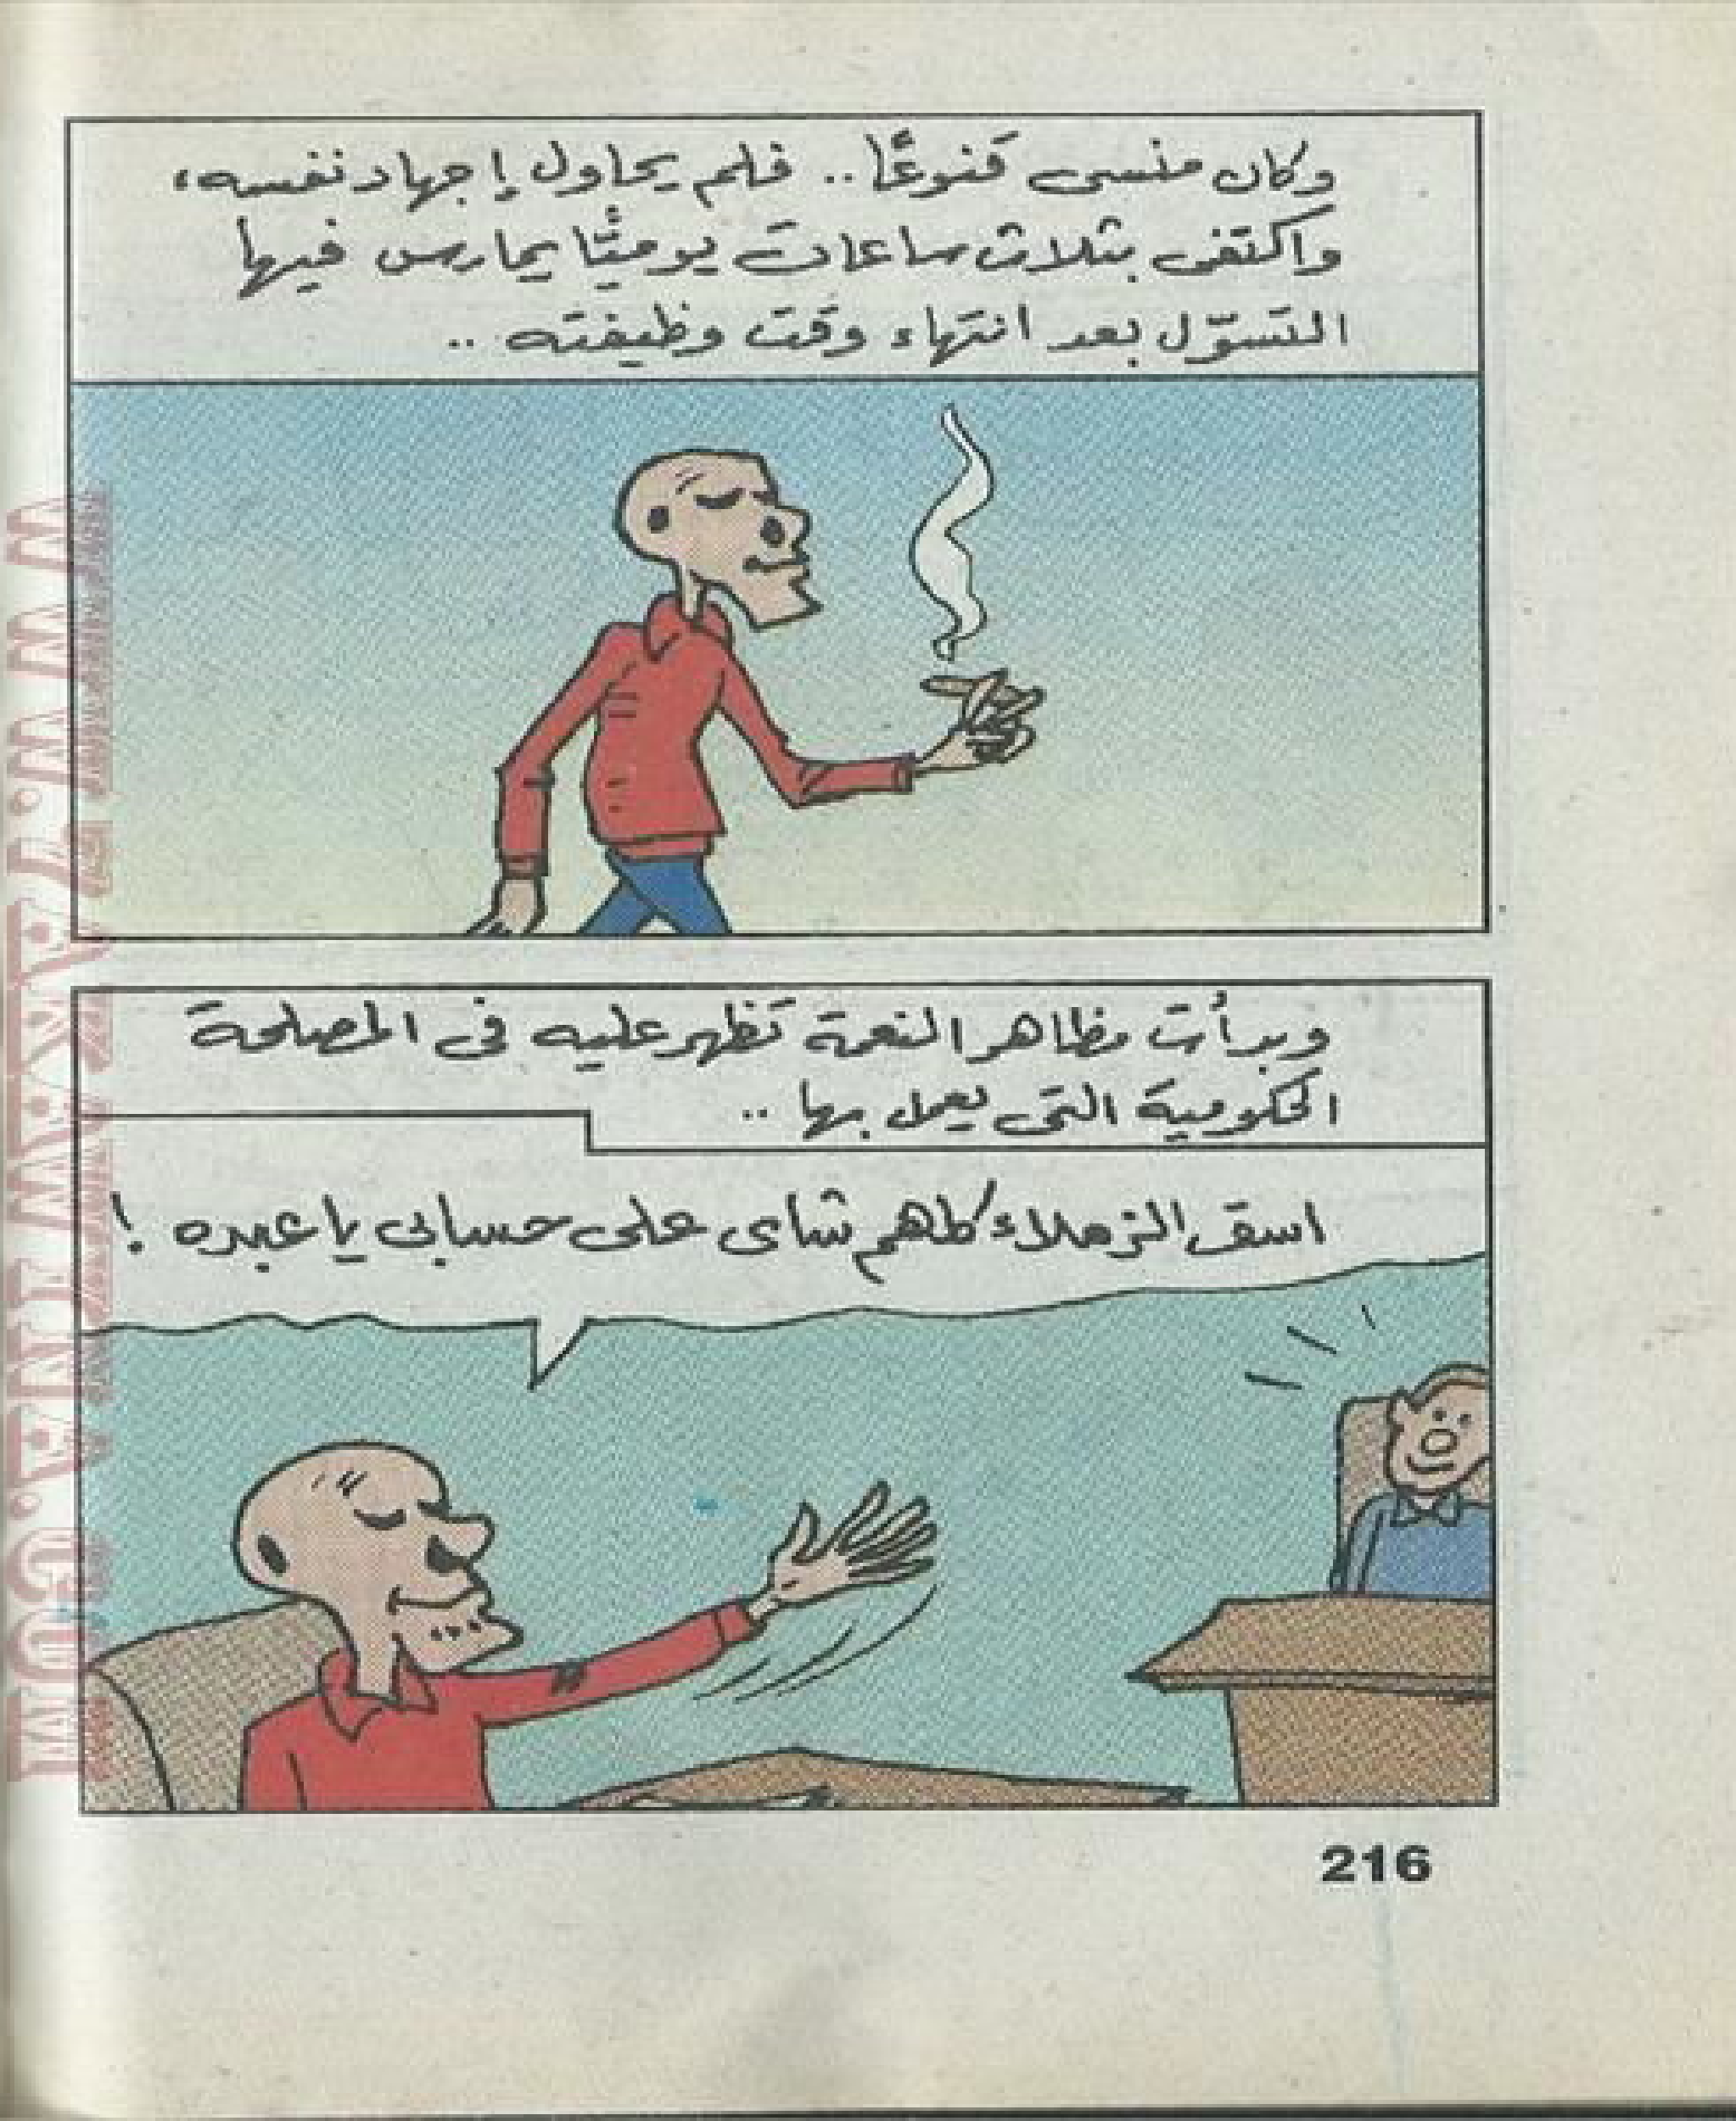 وكان منسى قنوعًا.. فلم يحاول إجهاد نفسه،
واكتفى بثلاث ساعات يوميًّا يمارس فيها
التسوّل بعد انتهاء وقت وظيفته ..
وبدأت مظاهر النعمة تظهر عليه فى المصلحة
الحكومية التى يعمل بها ..
اسق الزملاء كلهم شاى على حسابى يا عبده !
216